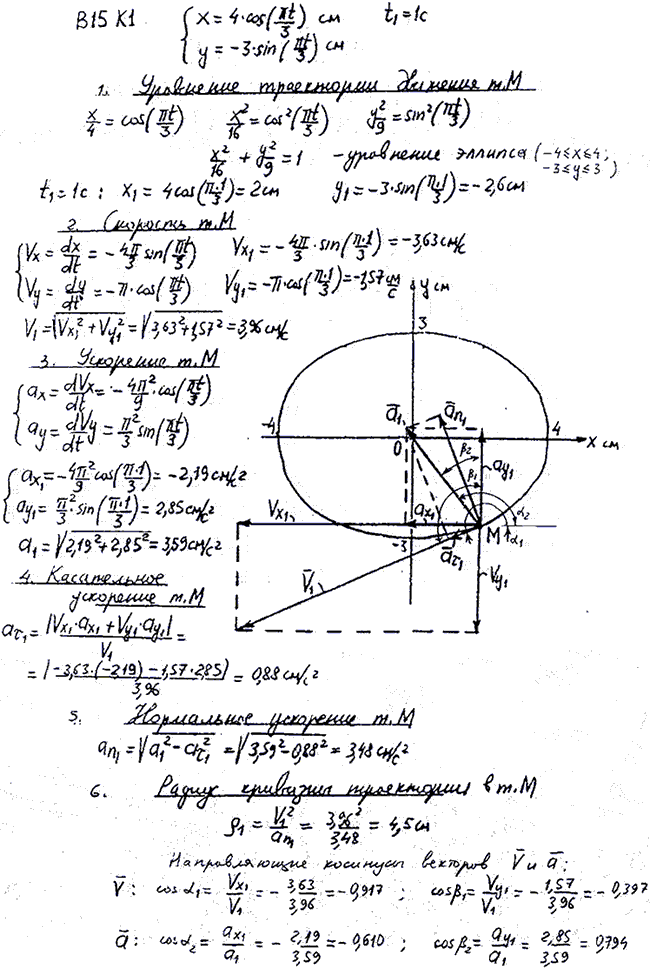 В15 К1 { x = 4·cos(πt/3) см t₁=1c
y = -3·sin(πt/3) см
1. Уравнение траектории движения т.М
x/4 = cos(πt/3) x²/16 = cos²(πt/3) y²/9 = sin²(πt/3)
x²/16 + y²/9 = 1 - уравнение эллипса (-4≤x≤4; -3≤y≤3)
t₁=1c : x₁ = 4cos(π·1/3) = 2см y₁ = -3·sin(π·1/3) = -2,6см
2. Скорость т.М
{ Vx = dx/dt = -4π/3 sin(πt/3) Vx₁ = -4π/3·sin(π·1/3) = -3,63 см/с
Vy = dy/dt = -π·cos(πt/3) Vy₁ = -π·cos(π·1/3) = -1,57 см/с
V₁ = √(Vx₁² + Vy₁²) = √(3,63² + 1,57²) = 3,96 см/с
3. Ускорение т.М
{ ax = dVx/dt = -4π²/9·cos(πt/3)
ay = dVy/dt = π²/3 sin(πt/3)
{ ax₁ = -4π²/9 cos(π·1/3) = -2,19 см/с²
ay₁ = π²/3·sin(π·1/3) = 2,85 см/с²
a₁ = √(2,19² + 2,85²) = 3,59 см/с²
4. Касательное
ускорение т.М
aτ₁ = |Vx₁·ax₁ + Vy₁·ay₁| / V₁ =
= |-3,63·(-2,19) - 1,57·2,85| / 3,96 = 0,88 см/с²
y см
3
ā₁ ān₁
-4 O 4 x см
β₂ ay₁
β₁
Vx₁ ax₁ α₂
M α₁
-3 āτ₁
V̄₁ Vy₁
5. Нормальное ускорение т.М
an₁ = √(a₁² - aτ₁²) = √(3,59² - 0,88²) = 3,48 см/с²
6. Радиус кривизны траектории в т.М
ρ₁ = V₁²/an₁ = 3,96²/3,48 = 4,5 см
Направляющие косинусы векторов V̄ и ā:
V̄: cosα₁ = Vx₁/V₁ = -3,63/3,96 = -0,917 ; cosβ₁ = Vy₁/V₁ = -1,57/3,96 = -0,397
ā: cosα₂ = ax₁/a₁ = -2,19/3,59 = -0,610 ; cosβ₂ = ay₁/a₁ = 2,85/3,59 = 0,794